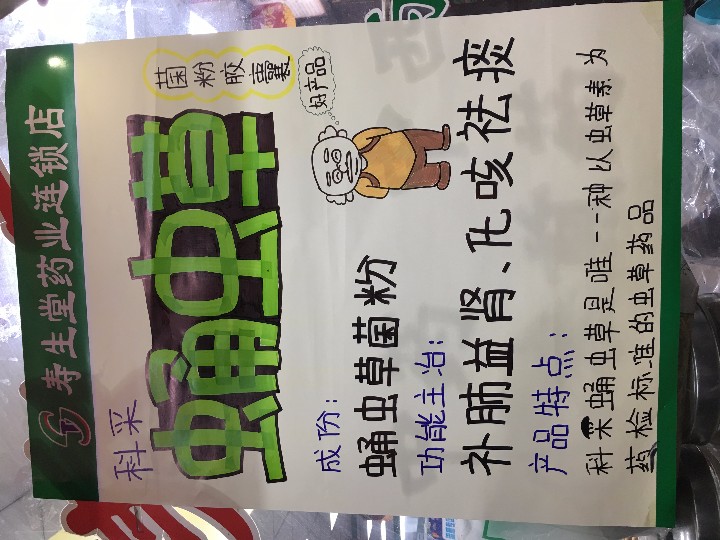 寿生堂药业连锁店
科采
蛹虫草
菌粉胶囊
好产品
成份:
蛹虫草菌粉
功能主治:
补肺益肾、止咳祛痰
产品特点:
科采蛹虫草是唯一一种以虫草素为
药检标准的虫草药品